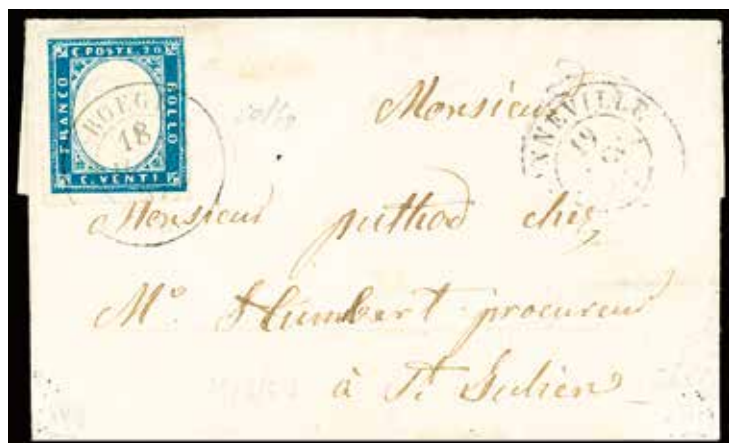 C. POSTE 20
FRANCO
BOLLO
C. VENTI
BOEG
18
NNEVILLE
19
Monsieur
Monsieur puthod chez
Mº. Humbert procureur
à St Julien